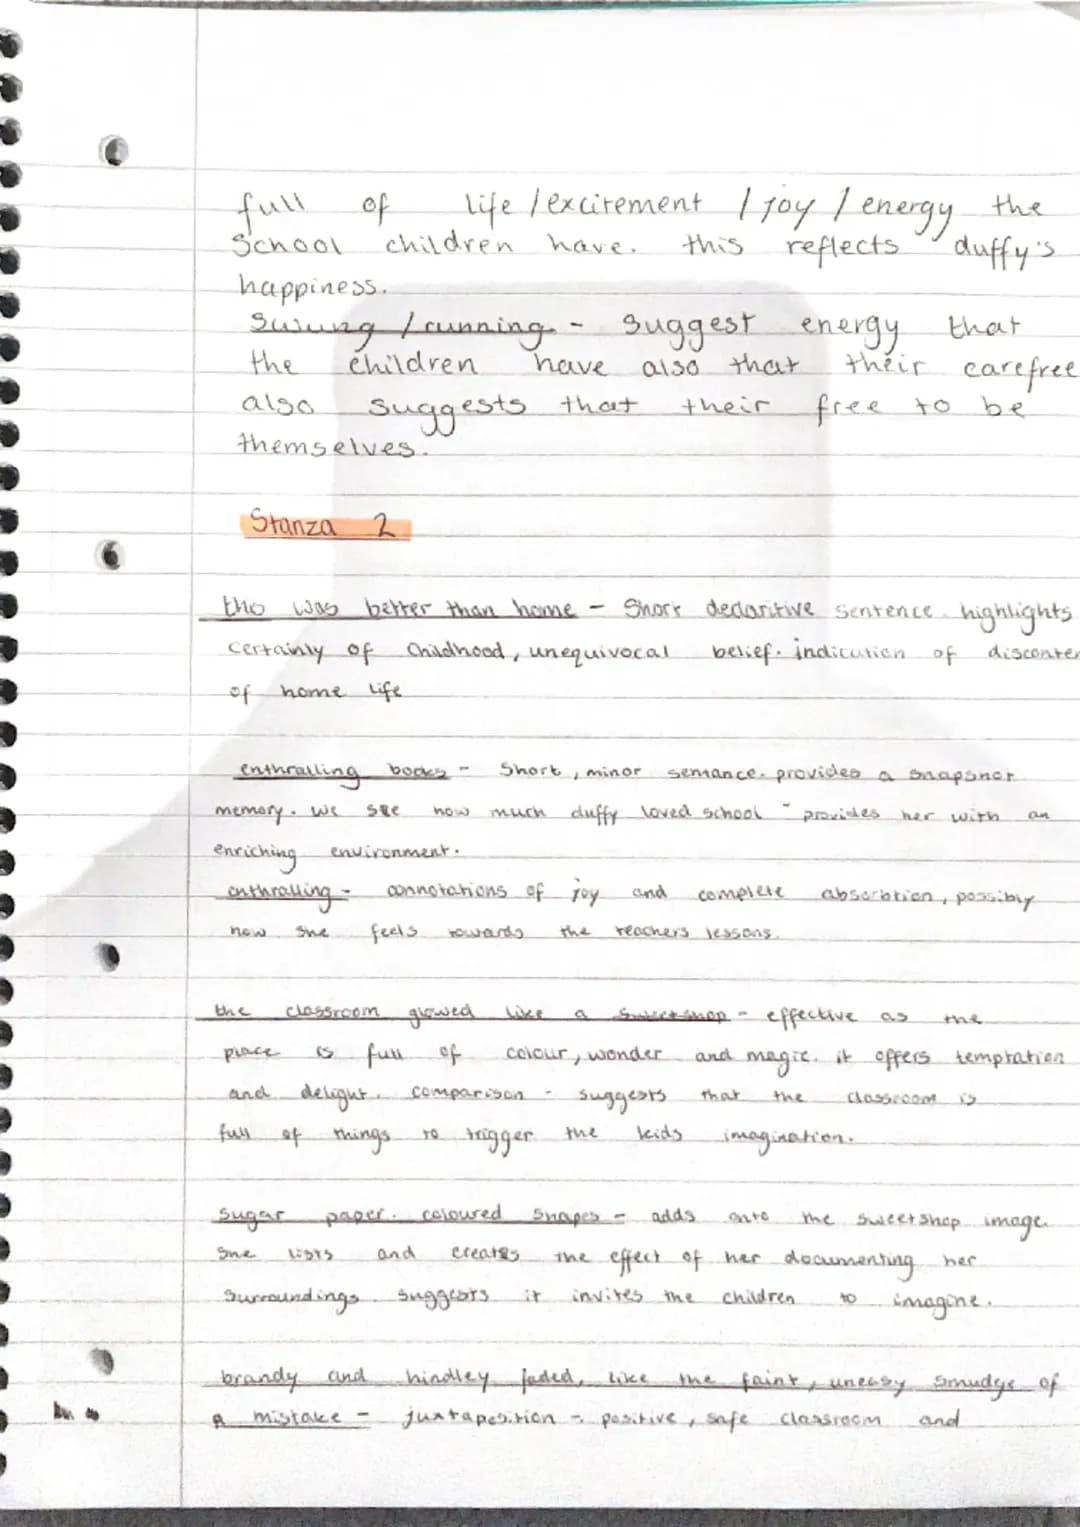 full of life / excitement / joy / energy the
School children have. this reflects duffy's
happiness.
Swung / running - suggest energy that
the children have also that their carefree
also suggests that their free to be
themselves.
Stanza 2
this was better than home - Short declaritive sentence. highlights
certainly of Childhood, unequivocal belief. indication of disconten
of home life
enthralling books - Short, minor sentance. provides a snapshot
memory. We see how much duffy loved school - provides her with an
enriching environment.
enthralling - connotations of joy and complete absorbtion, possibly
how she feels towards the teachers lessons.
the classroom glowed like a Sweetshop - effective as the
place is full of colour, wonder and magic. it offers temptation
and delight. comparison - suggests that the classroom is
full of things to trigger the kids imagination.
Sugar paper. coloured Shapes - adds onto the sweetshop image.
She lists and creates the effect of her documenting her
Surroundings. Suggests it invites the children to imagine.
brandy and hindley faded, like the faint, uneasy smudge of
A mistake - juxtaposition - positive, safe classroom and